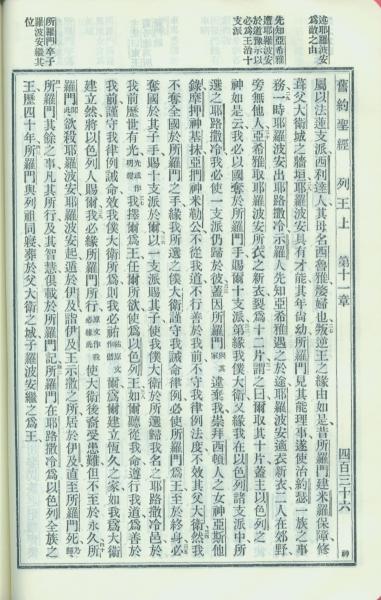 述耶羅波安
為敵之由
先知亞希雅
遇耶羅波安
於道豫示以
必為王治十
支派
所羅門卒子
羅波安繼其
位
舊約聖經 列王上 第十一章 四百三十六 神
屬以法蓮支派西利達人其母名西魯雅嫠婦也叛逆王之緣由如是昔所羅門建米羅保障修
葺父大衛城之牆垣耶羅波安具有才能其年尚幼所羅門見其能理事遂使治約瑟一族之事
務一時耶羅波安出耶路撒冷示羅人先知亞希雅遇之於途耶羅波安適衣新衣二人在郊野
旁無他人亞希雅取耶羅波安所衣之新衣裂為十二片謂之曰爾取其十片蓋主以色列之
神如是云我必以國奪於所羅門手賜爾十支派第緣我僕大衛又緣我在以色列諸支派中所
選之耶路撒冷我必使一支派仍歸於彼蓋因所羅門與其家違棄我崇拜西頓人之女神亞斯他
錄摩押神基抹亞捫神米勒公不從我道不行善於我前不守我律例法度不效其父大衛然我
不奪全國於所羅門之手緣我所選之僕大衛謹守我誡命律例必使所羅門為王至於終身必
奪國於其子手賜十支派於爾以一支派賜其子使我僕大衛於所選歸我名之耶路撒冷邑於
我前歷世有光我擇爾為王任爾所欲為以色列王如爾聽從我命遵行我道為善於
我前謹守我律例誡命效我僕大衛所為則我必祐爾為爾建立恆久之家如我為大衛
建立然將以色列人賜爾我必緣所羅門所行原文作我必緣此使大衛後裔受患難但不至於永久所
羅門聞此欲殺耶羅波安耶羅波安起遁於伊及詣伊及王示撒之所居於伊及直至所羅門死乃歸
所羅門其餘之事凡其所行及其智慧俱載於所羅門記所羅門在耶路撒冷為以色列全族之
王歷四十年所羅門與列祖同寢葬於父大衛之城子羅波安繼之為王